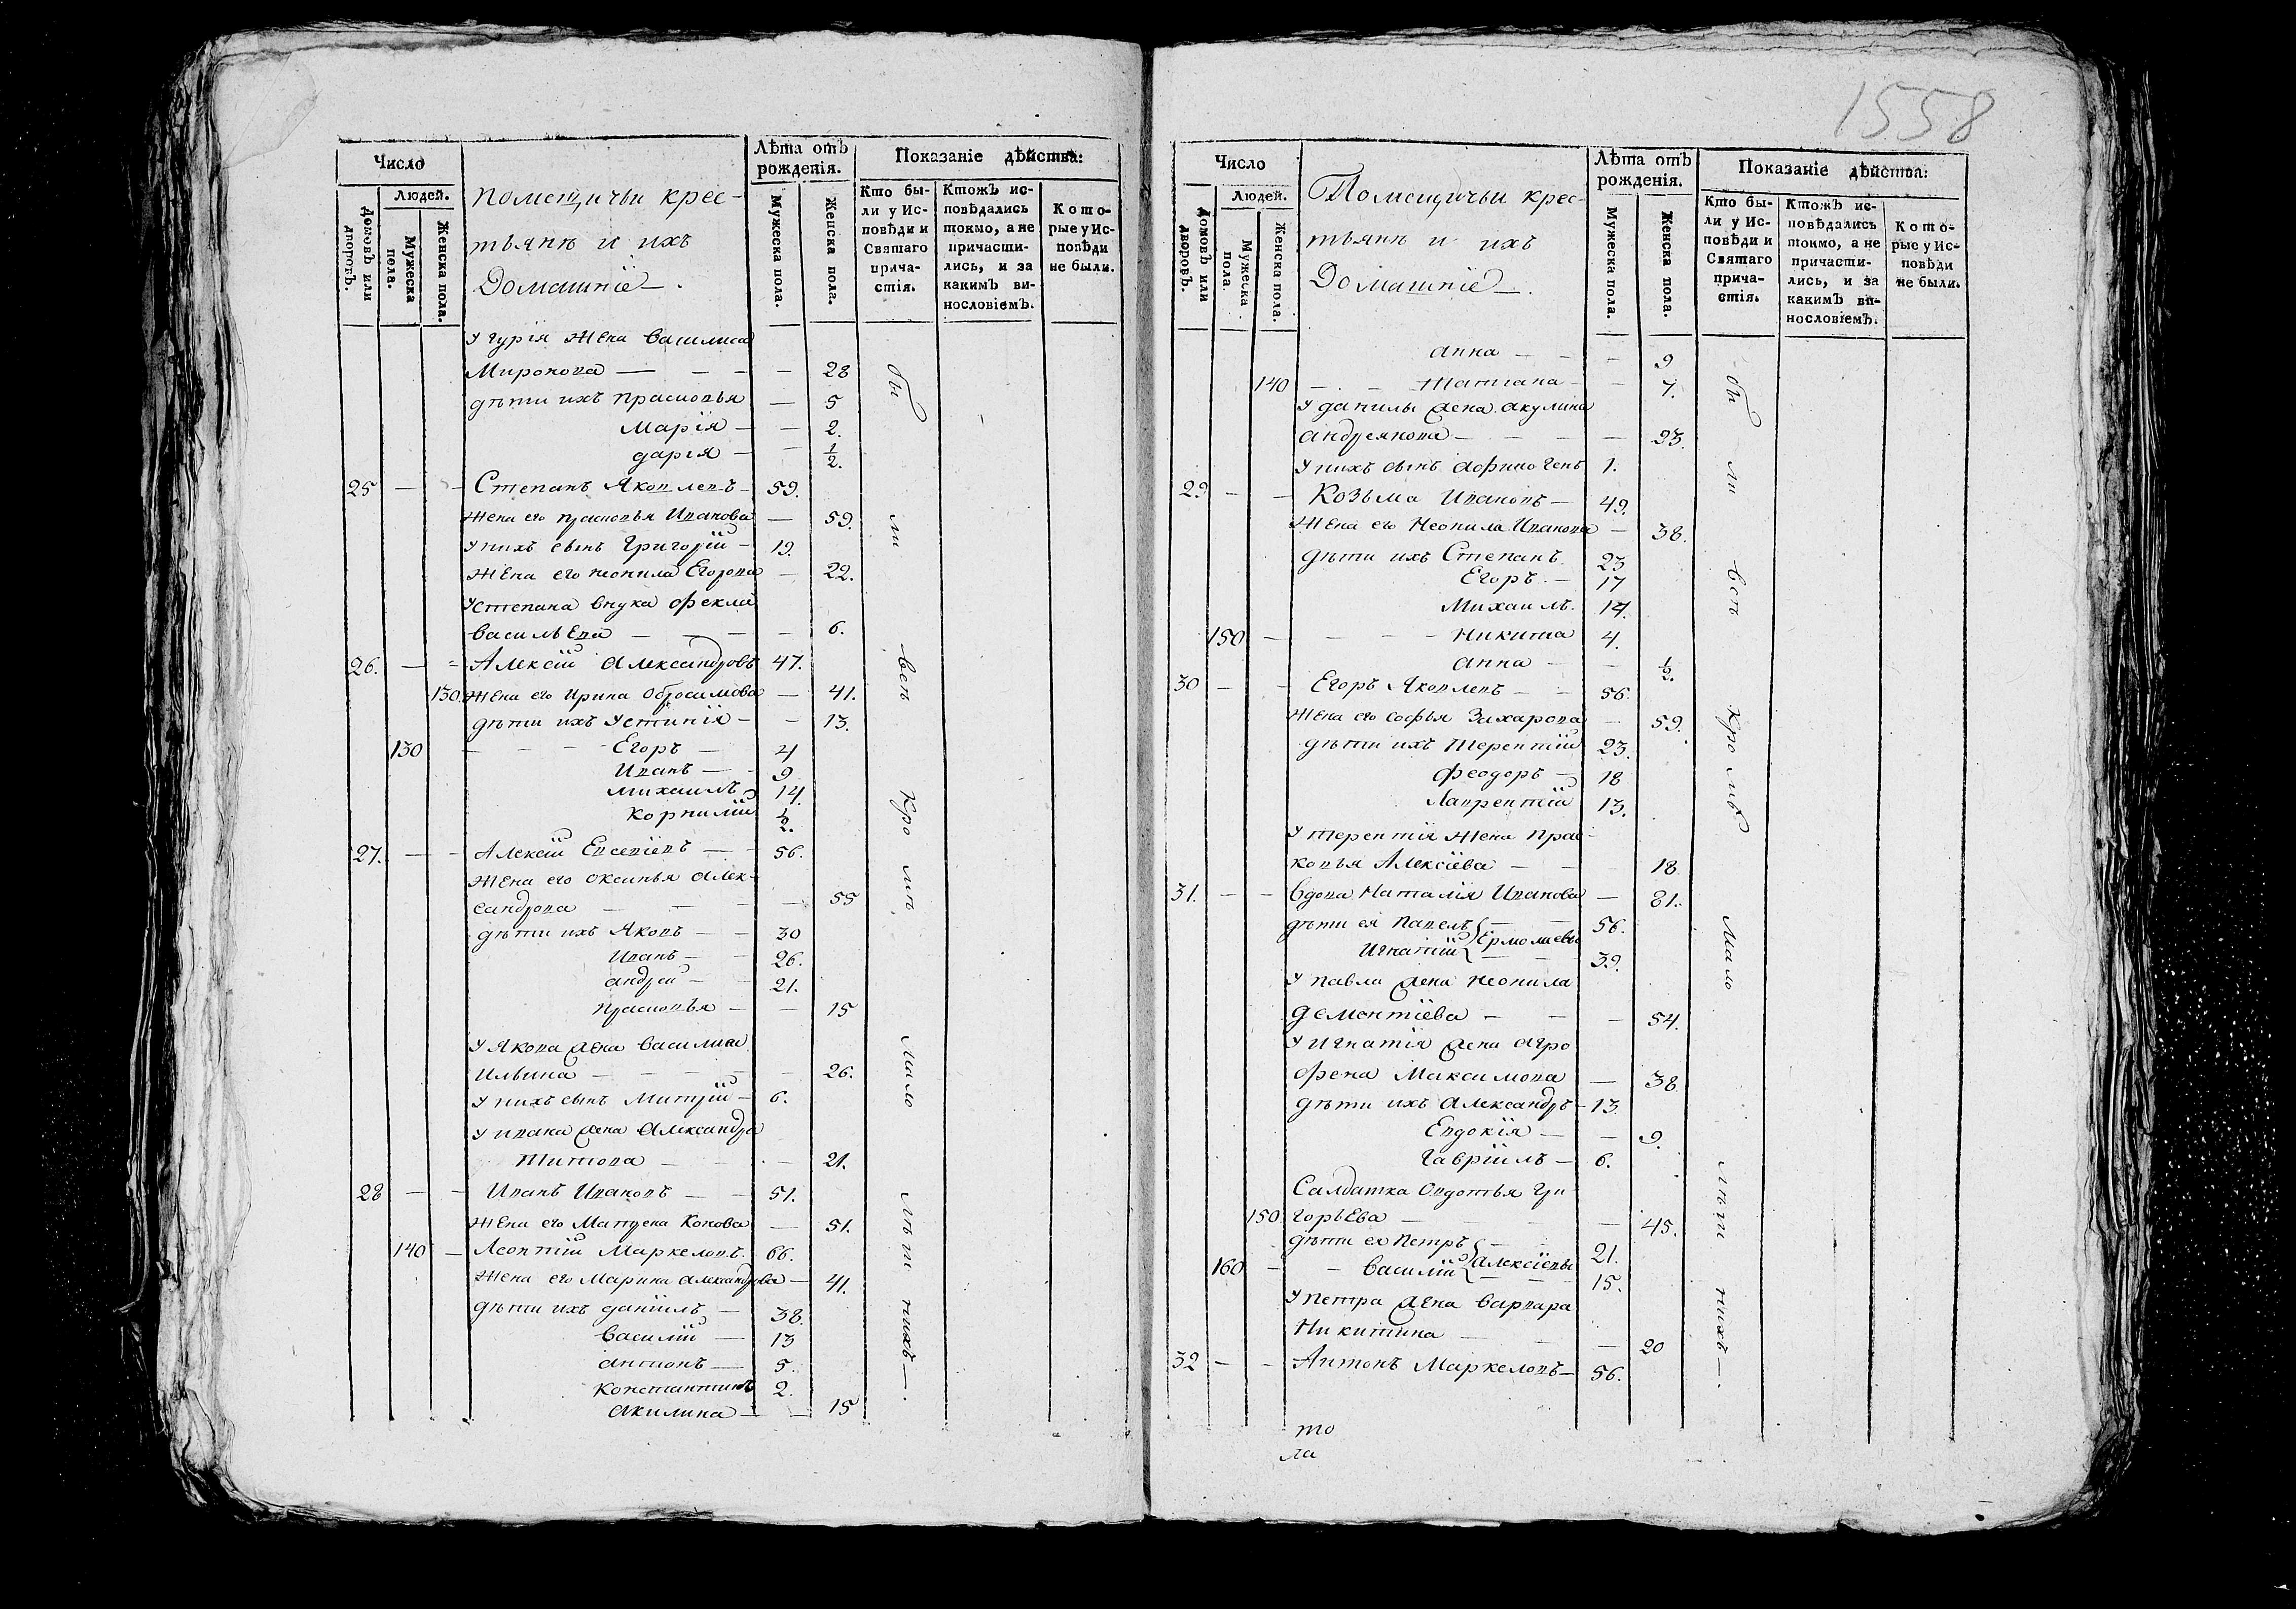 Число
Людей.
Домовъ или дворовъ.
Мужеска пола.
Женска пола.
помещичьи крес-
тьяне и ихъ
Домашніе.
Лѣта отъ рожденія.
Мужеска пола.
Женска пола.
Показаніе дѣйства:
Кто бы-
ли у Ис-
повѣди и
Святаго
прича-
стія.
Ктожъ ис-
повѣдались
токмо, а не
причасти-
лись, и за
какимъ ви-
нословіемъ.
Кото-
рые у Ис-
повѣди
не были.
У гурія жена василиса
Миронова — — — — 28
дѣти ихъ прасковья — 5
Марія — — 2.
дарія — — 1/2.
25 — — Степанъ Яковлевъ — 59.
Жена его прасковья Иванова — 59.
У нихъ сынъ Григорій — 19.
Жена его неонила Егорова — 22.
У степана внука фекла
васильева — — — — 6.
26. — — Алексій Александровъ 47.
130 Жена его Ирина Обросимова — 41.
дѣти ихъ Устинія — — 13.
130 — — — Егоръ — 4
Иванъ — 9
михаилъ 14.
корнилій 1/2.
27. — — Алексій Евсевіевъ — 56.
Жена его оксинья алек-
сандрова — — — — 55
дѣти ихъ Яковъ — — 30
Иванъ — — 26.
андрей — 21.
прасковья — — 15
У Якова жена василиса
ильина — — — — 26.
У нихъ сынъ Митрій — 6.
У ивана жена Александра
Титова — — — 21.
28 — — Иванъ Ивановъ — — 51.
Жена его Матрена Конова — 51.
140 — Леонтій Маркеловъ. 66.
Жена его Марина александрова — 41.
дѣти ихъ даніилъ — 38.
василій — 13
антонъ — 5.
константинъ 2.
акилина — — 15
бы
ли
всѣ
кро
мѣ
мало
лѣт
нихъ — .
1558
Число
Людей.
Домовъ или дворовъ.
Мужеска пола.
Женска пола.
Помещичьи крес-
тьяне и ихъ
Домашніе.
Лѣта отъ рожденія.
Мужеска пола.
Женска пола.
Показаніе дѣйства:
Кто бы-
ли у Ис-
повѣди и
Святаго
прича-
стія.
Ктожъ ис-
повѣдались
токмо, а не
причасти-
лись, и за
какимъ ви-
нословіемъ.
Кото-
рые у Ис-
повѣди
не были.
анна — — — 9
140 — . — татиана — — 7.
У данилы жена акулина
андреянова — — — — 23.
У нихъ сынъ афиногенъ 1.
29. — — Козьма Ивановъ — 49.
Жена его Неонила Иванова — 38.
дѣти ихъ Степанъ 23
Егоръ. — 17
Михаилъ. 14.
150 — — — — Никита 4.
анна — — 1/2.
30 — — Егоръ Яковлевъ — — 56.
Жена его софья Захарова — 59.
дѣти ихъ терентій 23.
феодоръ — 18
Лаврентій 13.
У терентія жена прас-
ковья Алексіева — — 18
31. — — вдова Наталія Иванова — 81.
дѣти ея павелъ — — 56.
Игнатій — — 39.
Ермолаевы
У павла жена неонила
дементіева — — — 54.
У игнатія жена агро
фена Максимова — 38.
дѣти ихъ александръ — 13.
Евдокія — — 9.
гавріилъ — 6.
Салдатка Овдотья гри
150 горьева — — 45.
дѣти ея петръ — — 21.
160 — — василій — — 15.
алексіевы
У петра жена варвара
Никитина — — — 20
32 — — Антонъ Маркеловъ — 56.
то
ла
бы
ли
всѣ
кро мѣ
мало
лѣт
нихъ — .